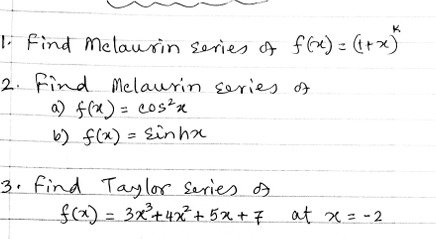 1. Find Mclaurin series of f(x) = (1+x)^k
2. Find Mclaurin series of
a) f(x) = cos²x
b) f(x) = sinhx
3. Find Taylor series of
f(x) = 3x³+4x²+5x+7 at x = -2